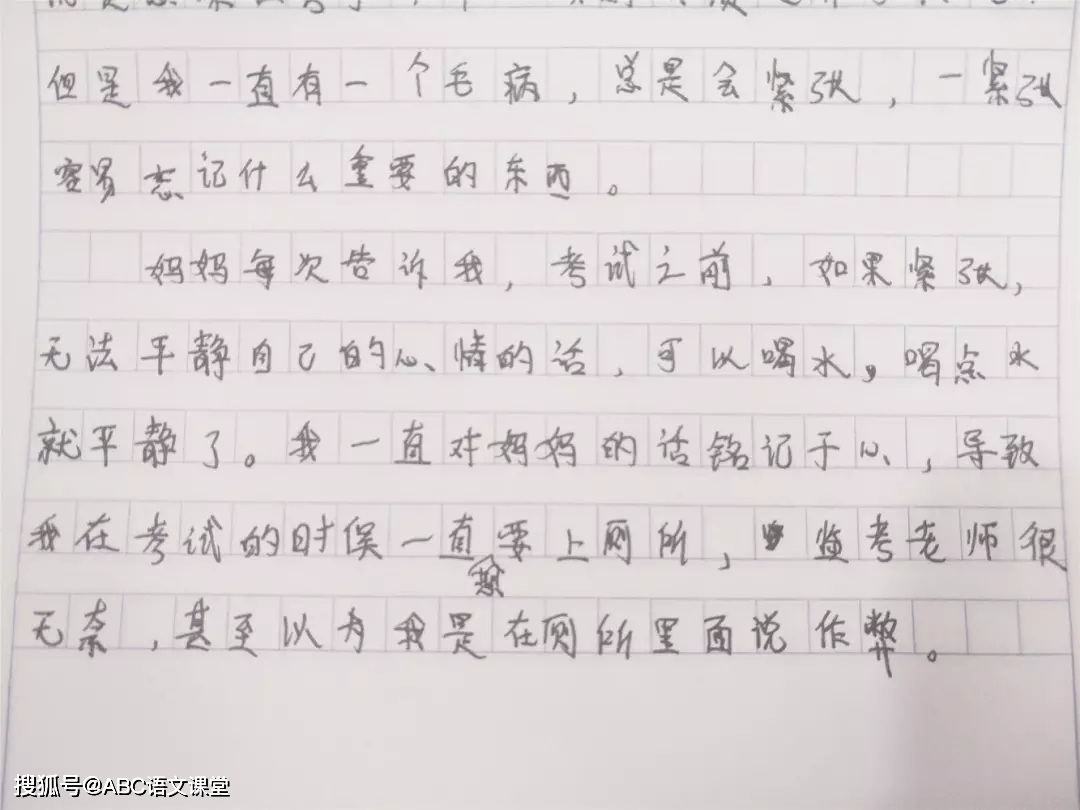 但是我一直有一个毛病，总是会紧张，一紧张
容易忘记什么重要的东西。
妈妈每次告诉我，考试之前，如果紧张，
无法平静自己的心情的话，可以喝水，喝点水
就平静了。我一直对妈妈的话铭记于心，导致
我在考试的时候一直想要上厕所，监考老师很
无奈，甚至以为我是在厕所里面说作弊。
搜狐号@ABC语文课堂